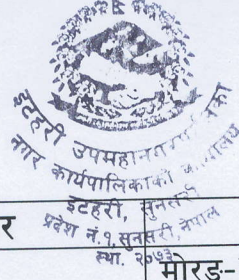 इटहरी उपमहानगरपालिका
नगर कार्यपालिकाको कार्यालय
इटहरी, सुनसरी
प्रदेश नं. १, सुनसरी, नेपाल
स्था. २०७३
र
मोरङ-